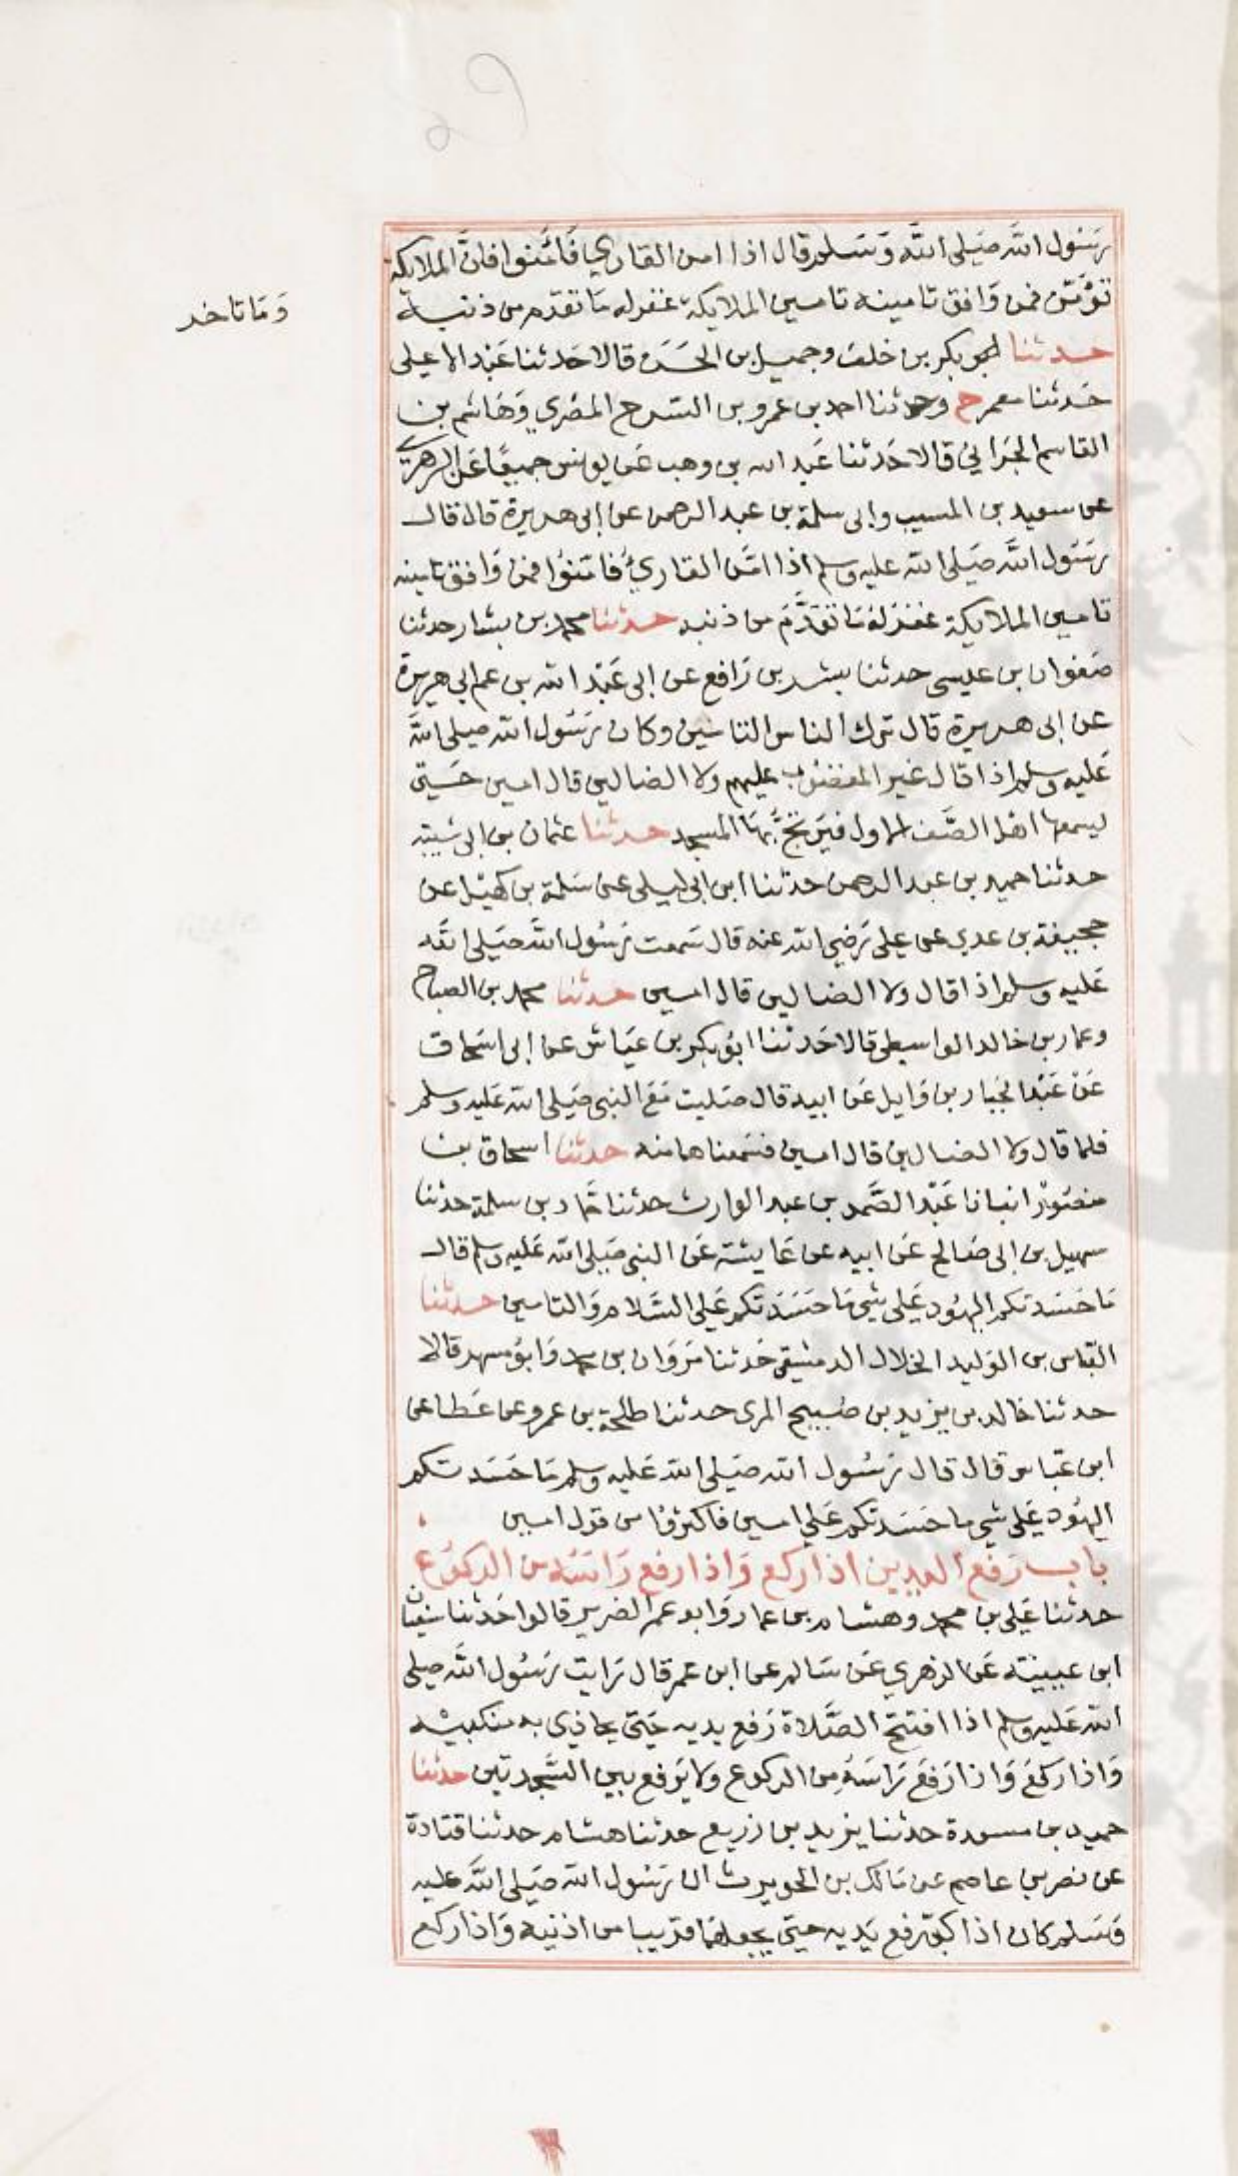 رسول الله صلى الله وسلم قال اذا امن القاري فامنوا فان الملايكة
تؤمن فمن وافق تامينه تامين الملايكة غفر له ما تقدم من ذنبه
وما تاخر
حدثنا ابو بكر بن خلف وجميل بن الحسن قالا حدثنا عبد الاعلى
حدثنا معمر ح وحدثنا احمد بن عمرو بن السرح المصري وهاشم بن
القاسم الحراني قالا حدثنا عبد الله بن وهب عن يونس جميعا عن الزهري
عن سعيد بن المسيب وابي سلمة بن عبد الرحمن عن ابي هريرة قال قال
رسول الله صلى الله عليه وسلم اذا امن القاري فامنوا فمن وافق تامينه
تامين الملايكة غفر له ما تقدم من ذنبه حدثنا محمد بن بشار حدثنا
صفوان بن عيسى حدثنا بشر بن رافع عن ابي عبد الله بن عم ابي هريرة
عن ابي هريرة قال ترك الناس التامين وكان رسول الله صلى الله
عليه وسلم اذا قال غير المغضوب عليهم ولا الضالين قال امين حتى
يسمعها اهل الصف الاول فيرتج بها المسجد حدثنا عثمان بن ابي شيبة
حدثنا حميد بن عبد الرحمن حدثنا ابن ابي ليلى عن سلمة بن كهيل عن
حجية بن عدي عن علي رضي الله عنه قال سمعت رسول الله صلى الله
عليه وسلم اذا قال ولا الضالين قال امين حدثنا محمد بن الصباح
وعمار بن خالد الواسطي قالا حدثنا ابو بكر بن عياش عن ابي اسحاق
عن عبد الجبار بن وايل عن ابيه قال صليت مع النبي صلى الله عليه وسلم
فلما قال ولا الضالين قال امين فسمعناها منه حدثنا اسحاق بن
منصور انبانا عبد الصمد بن عبد الوارث حدثنا حماد بن سلمة حدثنا
سهيل بن ابي صالح عن ابيه عن عايشة عن النبي صلى الله عليه وسلم قال
ما حسدتكم اليهود على شي ما حسدتكم على السلام والتامين حدثنا
العباس بن الوليد الخلال الدمشقي حدثنا مروان بن محمد وابو مسهر قالا
حدثنا خالد بن يزيد بن صبيح المري حدثنا طلحة بن عمرو عن عطا عن
ابن عباس قال قال رسول الله صلى الله عليه وسلم ما حسدتكم
اليهود على شي ما حسدتكم على امين فاكثروا من قول امين
باب رفع اليدين اذا ركع واذا رفع راسه من الركوع
حدثنا علي بن محمد وهشام بن عمار وابو عمر الضرير قالوا حدثنا سفيان
ابن عيينة عن الزهري عن سالم عن ابن عمر قال رايت رسول الله صلى
الله عليه وسلم اذا افتتح الصلاة رفع يديه حتى يحاذي به منكبيه
واذا ركع واذا رفع راسه من الركوع ولا يرفع بين السجدتين حدثنا
حميد بن مسعدة حدثنا يزيد بن زريع حدثنا هشام حدثنا قتادة
عن نصر بن عاصم عن مالك بن الحويرث ان رسول الله صلى الله عليه
وسلم كان اذا كبر رفع يديه حتى يجعلهما قريبا من اذنيه واذا ركع